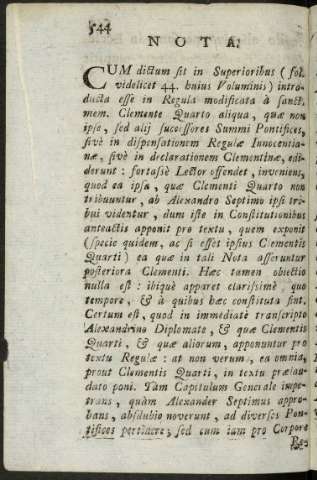 544
NOTA.
CUM dictum sit in Superioribus (fol.
videlicet 44. huius Voluminis) intro-
ducta esse in Regula modificata à sanct.
mem. Clemente Quarto aliqua, quæ non
ipse, sed alij successores Summi Pontifices,
sivè in dispensationem Regulæ Innocentia-
næ, sivè in declarationem Clementinæ, edi-
derunt: fortasiè Lector offendet, inveniens,
quod ea ipsa, quæ Clementi Quarto non
tribuuntur, ab Alexandro Septimo ipsi tri-
bui videntur, dum iste in Constitutionibus
anteactis apponit pro textu, quem exponit
(specie quidem, ac si esset ipsius Clementis
Quarti) ea quæ in tali Nota asseruntur
posteriora Clementi. Hæc tamen obiectio
nulla est: ibiquè apparet clarissimè, quo
tempore, & à quibus hæc constituta sint.
Certum est, quod in immediatè transcripto
Alexandrino Diplomate, & quæ Clementis
Quarti, & quæ aliorum, apponuntur pro
textu Regulæ: at non verum, ea omnia,
prout Clementis Quarti, in textu prælau-
dato poni. Tàm Capitulum Generale impe-
trans, quàm Alexander Septimus appro-
bans, absdubio noverunt, ad diversos Pon-
tifices pertinere; sed cum iam pro Corpore